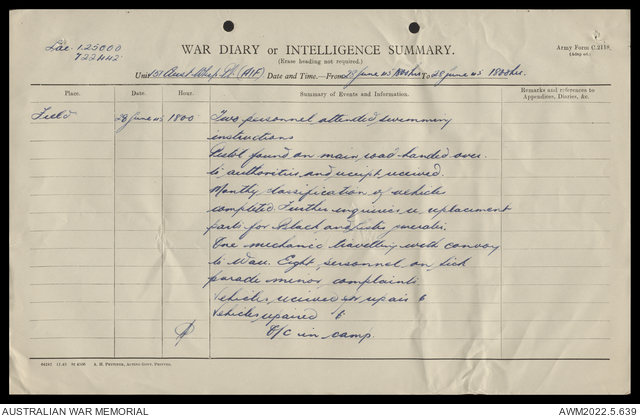 Lae 1.25000
722442
WAR DIARY or INTELLIGENCE SUMMARY.
(Erase heading not required.)
Army Form C.2118.
(Adapted).
Unit 151 Aust (AIF) Date and Time.—From 28 June 45 To 28 June 45 1800 hrs.
Place. Date. Hour. Summary of Events and Information. Remarks and references to
Appendices, Diaries, &c.
Field 28 June 45 1800 Two personnel attended swimming
instructions
found on main road handed over
to authorities and receipt received.
Monthly classification of vehicles
completed. Further enquiries re replacement
parts for Black and
One mechanic travelling with convoy
to Wau. Eight personnel on sick
parade minor complaints
Vehicles received for repair 6
Vehicles repaired 6
O/C in camp.
AUSTRALIAN WAR MEMORIAL
AWM2022.5.639